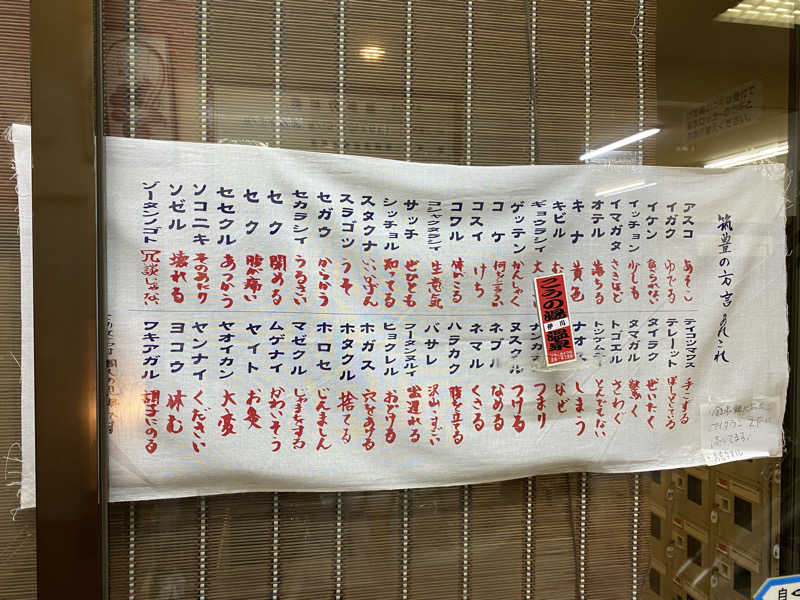 筑豊の方言あれこれ
アスコ あそこ
イガク ゆでる
イケン
イッチョン 少しも
イマガタ さきほど
オテル 落ちる
キナ 黄色
キビル
ギョウラシイ 大
ゲッテン かんしゃく
コケ
コスイ けち
コワル
コシャクラシイ 生意気
サッチ ぜひとも
シッチョル 知ってる
スタクナ
スラゴツ うそ
セガウ からかう
セカラシイ うるさい
セク 閉める
セク 腹が痛い
セセクル あつかう
ソコニキ そのあたり
ソゼル 壊れる
ゾータンノゴト 冗談じゃない
テイコンマンス 手こずる
テレーット ぼーとしてる
タイラク ぜいたく
タマガル 驚く
トゴエル さわぐ
トツケムナイ とんでもない
ナオス しまう
ナシ なぜ
ナンカ つまり
ヌスクル つける
ネブル なめる
ネマル くさる
ハラカク 腹を立てる
バサレ 沢山・ずい
フータンヌルイ 出遅れる
ヒョウゲル おどける
ホガス 穴をあける
ホタクル 捨てる
ホロセ じんましん
マゼクル じゃまをする
ムゲナイ かわいそう
ヤイト お灸
ヤオイカン 大変
ヤンナイ ください
ヨコウ 休む
ワキアガル 調子にのる
温泉